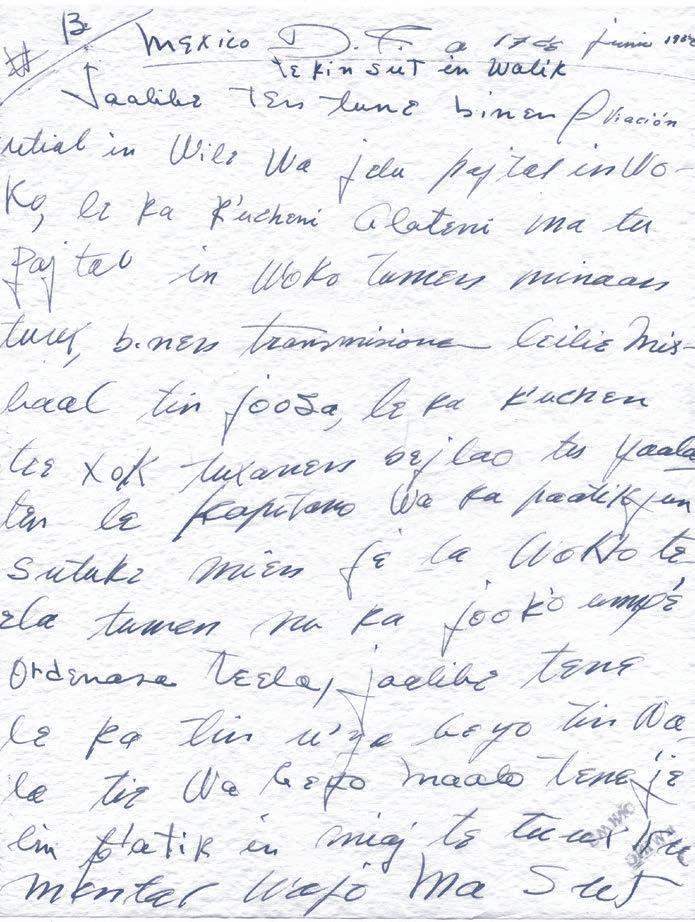 # 13
Mexico D. F. a 17 de junio
te kin sut in walik
Jaalibe ten tune binen Aviación
utial in Wile Wa jelu pajtal in Wo-
Ko, le ka k'ucheni alateni ma tu
pajtal in Woko tumen minaan
turno, binen transmisione leilie mis-
baal tin jooSa, le ka k'uchen
te xok tuxanen bejlao tu yaala
ten le kapitano Wa ka paatik jun
sutuke mien je la WoKo te
ela tumen nu ka jook'o umpe
Ordenasa teela, jaalibe tene
le ka tin u'ya beyo tin Wa-
la tie Wa beyo maalo tene je
lin p'atik in miaj te tuux
mental Wajo Ma Sut